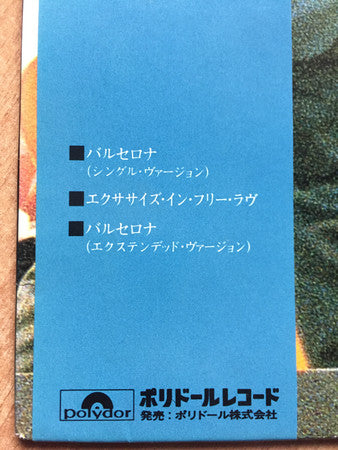 ■バルセロナ
(シングル・ヴァージョン)
■エクササイズ・イン・フリー・ラヴ
■バルセロナ
(エクステンデッド・ヴァージョン)
polydor
ポリドールレコード
発売：ポリドール株式会社